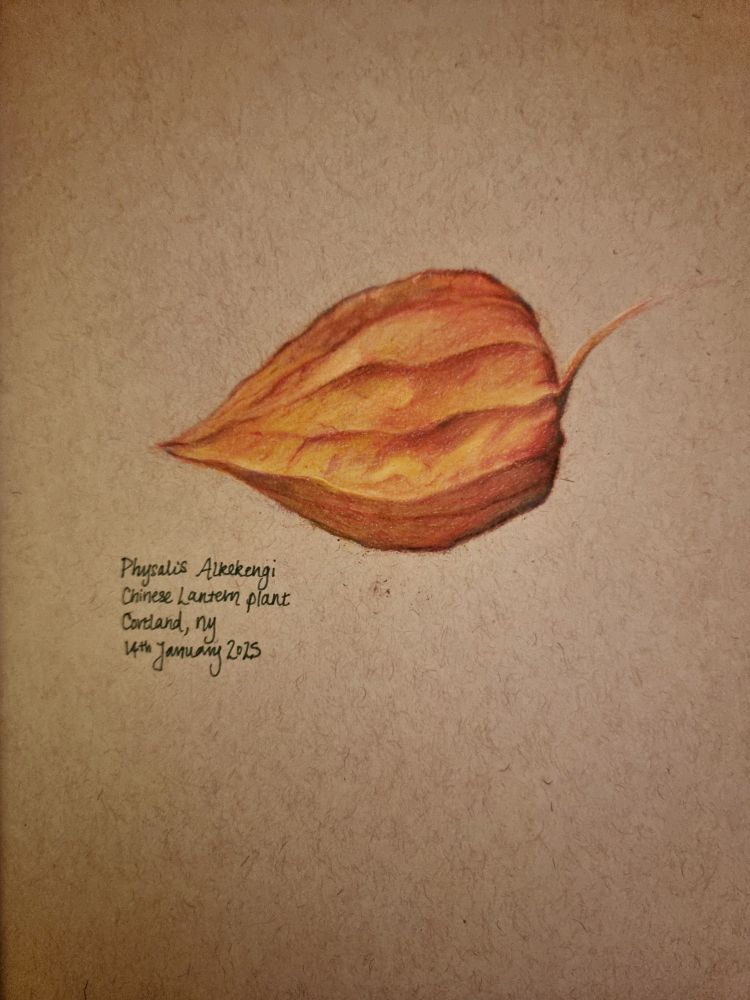 Physalis Alkekengi
Chinese Lantern plant
Cortland, ny
14th January 2025